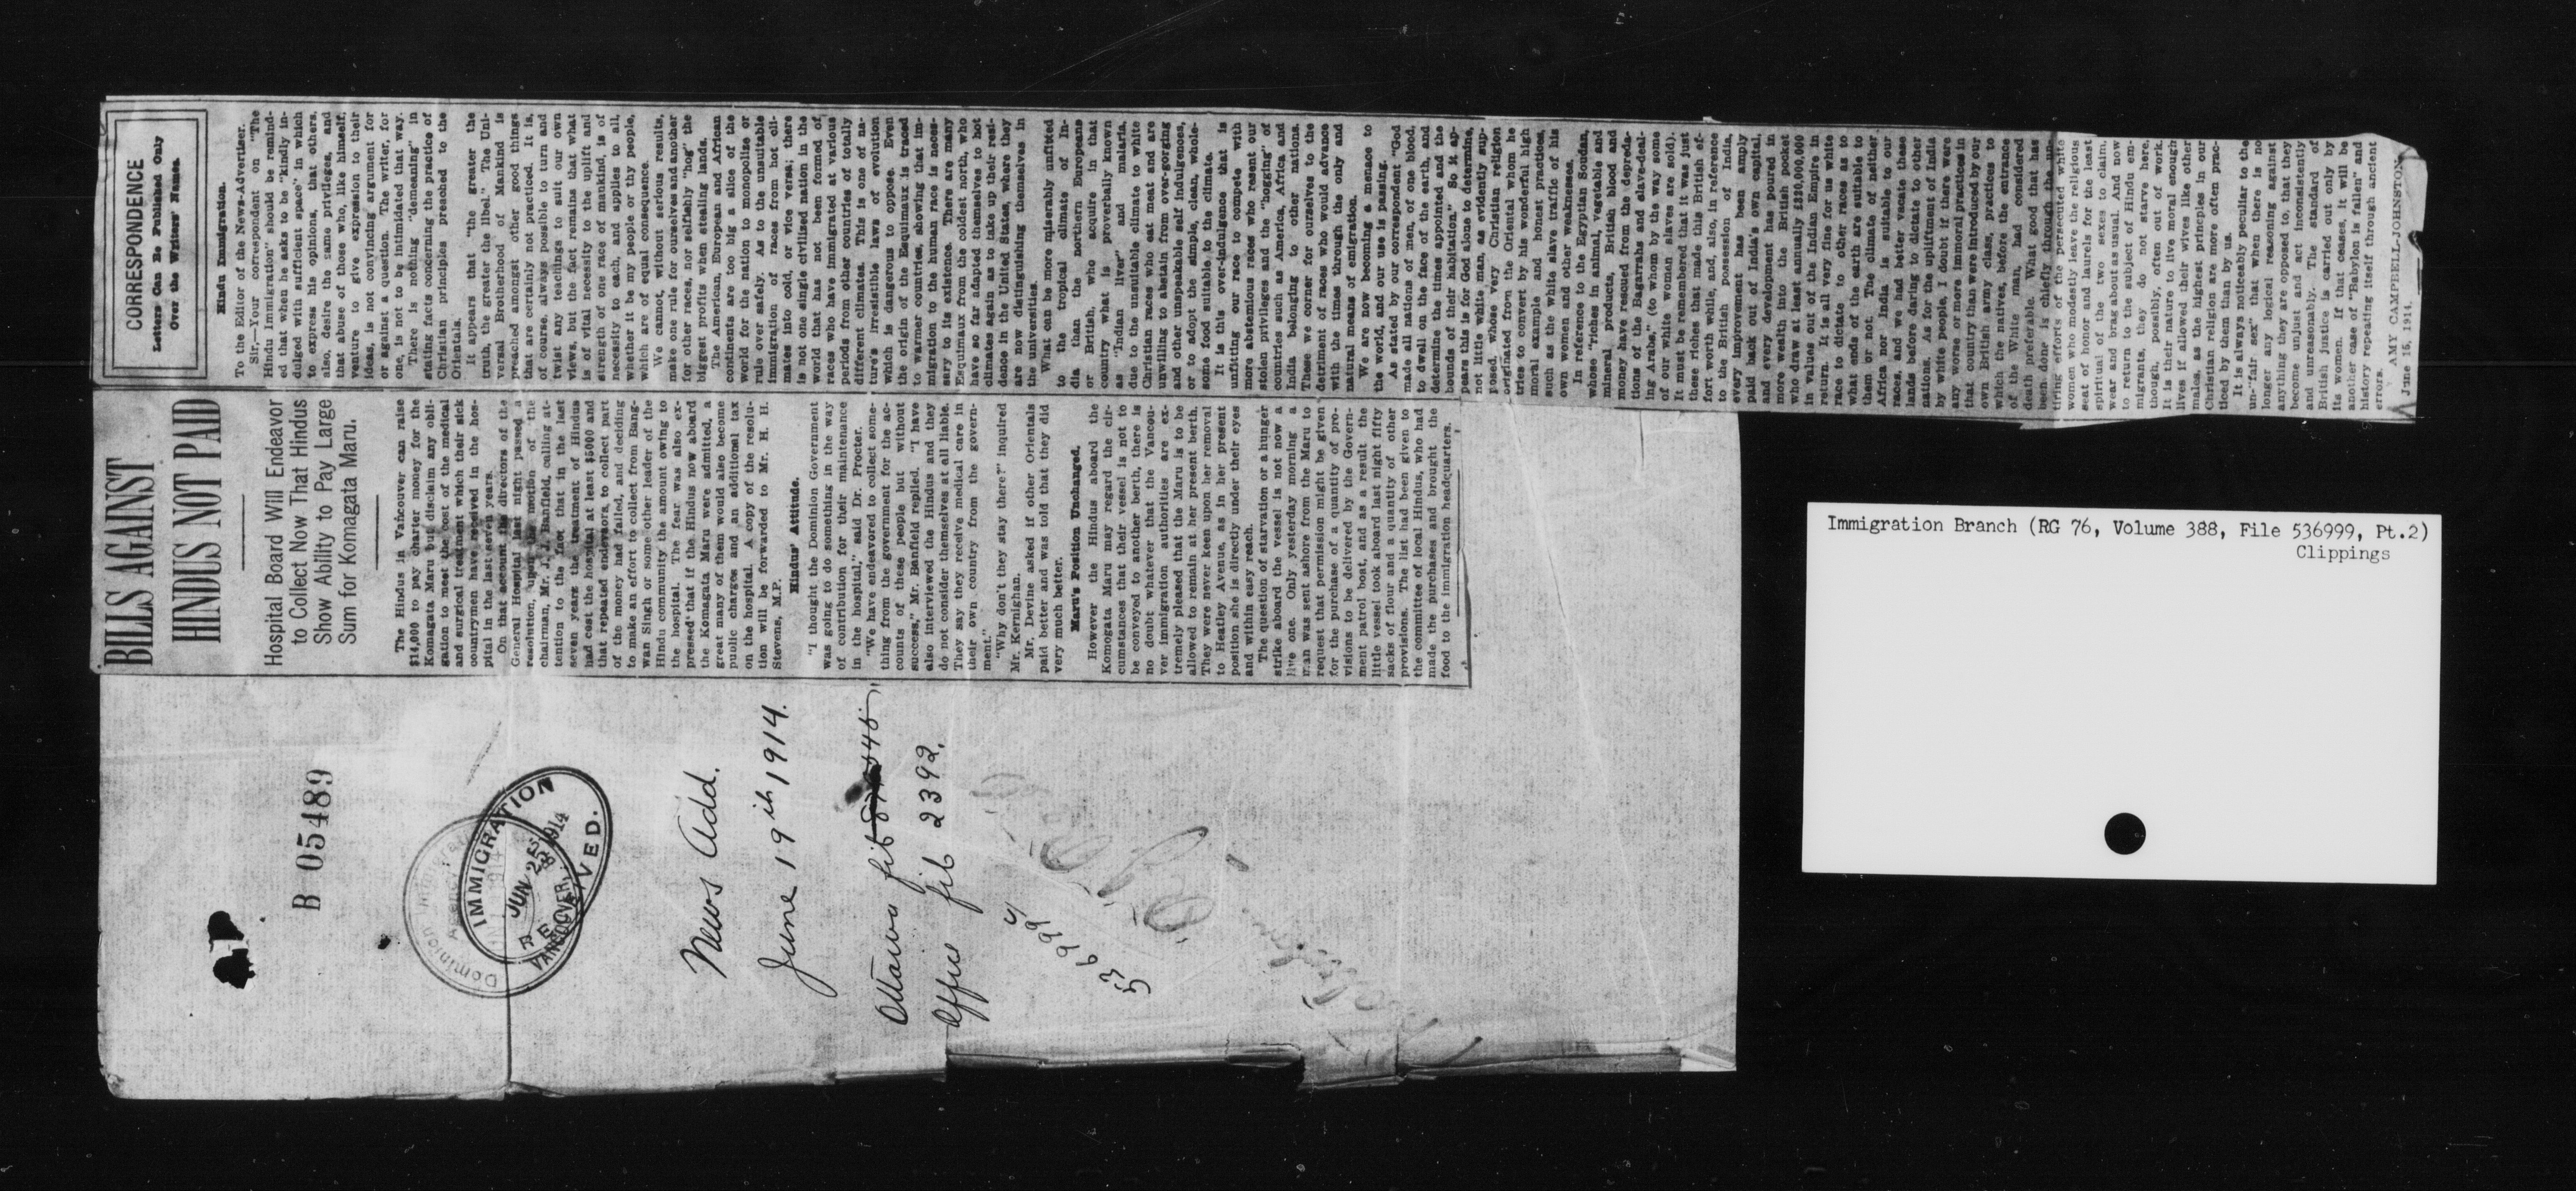 BILLS AGAINST
HINDUS NOT PAID
Hospital Board Will Endeavor
to Collect Now That Hindus
Show Ability to Pay Large
Sum for Komagata Maru.
The Hindus in Vancouver can raise
$14,000 to pay charter money for the
Komagata Maru but disclaim any obli-
gation to meet the cost of the medical
and surgical treatment which their sick
countrymen have received in the hos-
pital in the last seven years.
On that account the directors of the
General Hospital last night passed a
resolution, upon the motion of the
chairman, Mr. J. J. Banfield, calling at-
tention to the fact that in the last
seven years the treatment of Hindus
had cost the hospital at least $5000 and
that repeated endeavors, to collect part
of the money had failed, and deciding
to make an effort to collect from Bang-
wan Singh or some other leader of the
Hindu community the amount owing to
the hospital. The fear was also ex-
pressed that if the Hindus now aboard
the Komagata Maru were admitted, a
great many of them would also become
public charges and an additional tax
on the hospital. A copy of the resolu-
tion will be forwarded to Mr. H. H.
Stevens, M.P.
Hindus' Attitude.
"I thought the Dominion Government
was going to do something in the way
of contribution for their maintenance
in the hospital," said Dr. Procter.
"We have endeavored to collect some-
thing from the government for the ac-
counts of these people but without
success," Mr. Banfield replied. "I have
also interviewed the Hindus and they
do not consider themselves at all liable.
They say they receive medical care in
their own country from the govern-
ment."
"Why don't they stay there?" inquired
Mr. Kernighan.
Mr. Devine asked if other Orientals
paid better and was told that they did
very much better.
Maru's Position Unchanged.
However the Hindus aboard the
Komogata Maru may regard the cir-
cumstances that their vessel is not to
be conveyed to another berth, there is
no doubt whatever that the Vancou-
ver immigration authorities are ex-
tremely pleased that the Maru is to be
allowed to remain at her present berth.
They were never keen upon her removal
to Heatley Avenue, as in her present
position she is directly under their eyes
and within easy reach.
The question of starvation or a hunger
strike aboard the vessel is not now a
live one. Only yesterday morning a
man was sent ashore from the Maru to
request that permission might be given
for the purchase of a quantity of pro-
visions to be delivered by the Govern-
ment patrol boat, and as a result the
little vessel took aboard last night fifty
sacks of flour and a quantity of other
provisions. The list had been given to
the committee of local Hindus, who had
made the purchases and brought the
food to the immigration headquarters.
CORRESPONDENCE
Letters Can Be Published Only
Over the Writers' Names.
Hindu Immigration.
To the Editor of the News-Advertiser.
Sir,—Your correspondent on "The
Hindu Immigration" should be remind-
ed that when he asks to be "kindly in-
dulged with sufficient space" in which
to express his opinions, that others,
also, desire the same privileges, and
that abuse of those who, like himself,
venture to give expression to their
ideas, is not convincing argument for
or against a question. The writer, for
one, is not to be intimidated that way.
There is nothing "demeaning" in
stating facts concerning the practice of
Christian principles preached to the
Orientals.
It appears that "the greater the
truth, the greater the libel." The Uni-
versal Brotherhood of Mankind is
preached amongst other good things
that are certainly not practiced. It is,
of course, always possible to turn and
twist any teachings to suit our own
views, but the fact remains that what
is of vital necessity to the uplift and
strength of one race of mankind, is of
necessity to each, and applies to all,
whether it be my people or thy people,
which are of equal consequence.
We cannot, without serious results,
make one rule for ourselves and another
for other races, nor selfishly "hog" the
biggest profits when stealing lands.
The American, European and African
continents are too big a slice of the
world for the nation to monopolise or
rule over safely. As to the unsuitable
immigration of races from hot cli-
mates into cold, or vice versa; there
is not one single civilised nation in the
world that has not been formed of
races who have immigrated at various
periods from other countries of totally
different climates. This is one of na-
ture's irresistible laws of evolution
which is dangerous to oppose. Even
the origin of the Esquimaux is traced
to warmer countries, showing that im-
migration to the human race is neces-
sary to its existence. There are many
Esquimaux from the coldest north, who
have so far adapted themselves to hot
climates again as to take up their resi-
dence in the United States, where they
are now distinguishing themselves in
the universities.
What can be more miserably unfitted
to the tropical climate of In-
dia than the northern Europeans
or British, who acquire in that
country what is proverbially known
as "Indian liver" and malaria,
due to the unsuitable climate to white
Christian races who eat meat and are
unwilling to abstain from over-gorging
and other unspeakable self indulgences,
or to adopt the simple, clean, whole-
some food suitable to the climate.
It is this over-indulgence that is
unfitting our race to compete with
more abstemious races who resent our
stolen privileges and the "hogging" of
countries such as America, Africa and
India belonging to other nations.
These we corner for ourselves to the
detriment of races who would advance
with the times through the only and
natural means of emigration.
We are now becoming a menace to
the world, and our use is passing.
As stated by our correspondent "God
made all nations of men, of one blood,
to dwell on the face of the earth, and
determine the times appointed and the
bounds of their habitation." So it ap-
pears this is for God alone to determine,
not little white man, as evidently sup-
posed, whose very Christian religion
originated from the Oriental whom he
tries to convert by his wonderful high
moral example and honest practices,
such as the white slave traffic of his
own women and other weaknesses.
In reference to the Egyptian Soudan,
whose "riches in animal, vegetable and
mineral products, British blood and
money have rescued from the depreda-
tions of the Bagarrahs and slave-deal-
ing Arabs," (to whom by the way some
of our white women slaves are sold).
It must be remembered that it was just
these riches that made this British ef-
fort worth while, and, also, in reference
to the British possession of India,
every improvement has been amply
paid back out of India's own capital,
and every development has poured in
more wealth into the British pocket
who draw at least annually £30,000,000
in values out of the Indian Empire in
return. It is all very fine for us white
race to dictate to other races as to
what ends of the earth are suitable to
them or not. The climate of neither
Africa nor India is suitable to our
races, and we had better vacate these
lands before daring to dictate to other
nations. As for the upliftment of India
by white people, I doubt if there were
any worse or more immoral practices in
that country than were introduced by our
own British army class, practices to
which the natives, before the entrance
of the White man, had considered
death preferable. What good that has
been done is chiefly through the un-
tiring efforts of the persecuted white
women who modestly leave the religious
seat of honor and laurels for the least
spiritual of the two sexes to claim,
wear and brag about as usual. And now
to return to the subject of Hindu em-
migrants, they do not starve here,
though, possibly, often out of work.
It is their nature to live moral enough
lives if allowed their wives like other
males, as the highest principles in our
Christian religion are more often prac-
ticed by them than by us.
It is always noticeably peculiar to the
un-"fair sex" that when there is no
longer any logical reasoning against
anything they are opposed to, that they
become unjust and act inconsistently
and unreasonably. The standard of
British justice is carried out only by
its women. If that ceases, it will be
another case of "Babylon is fallen" and
history repeating itself through ancient
errors.
AMY CAMPBELL-JOHNSTON.
June 15, 1914.
B 05489
IMMIGRATION
JUN 25 1914
RECEIVED.
VANCOUVER,
News Add.
June 19th 1914.
Ottawa file
Office file 2392.
536999
Immigration Branch (RG 76, Volume 388, File 536999, Pt.2)
Clippings